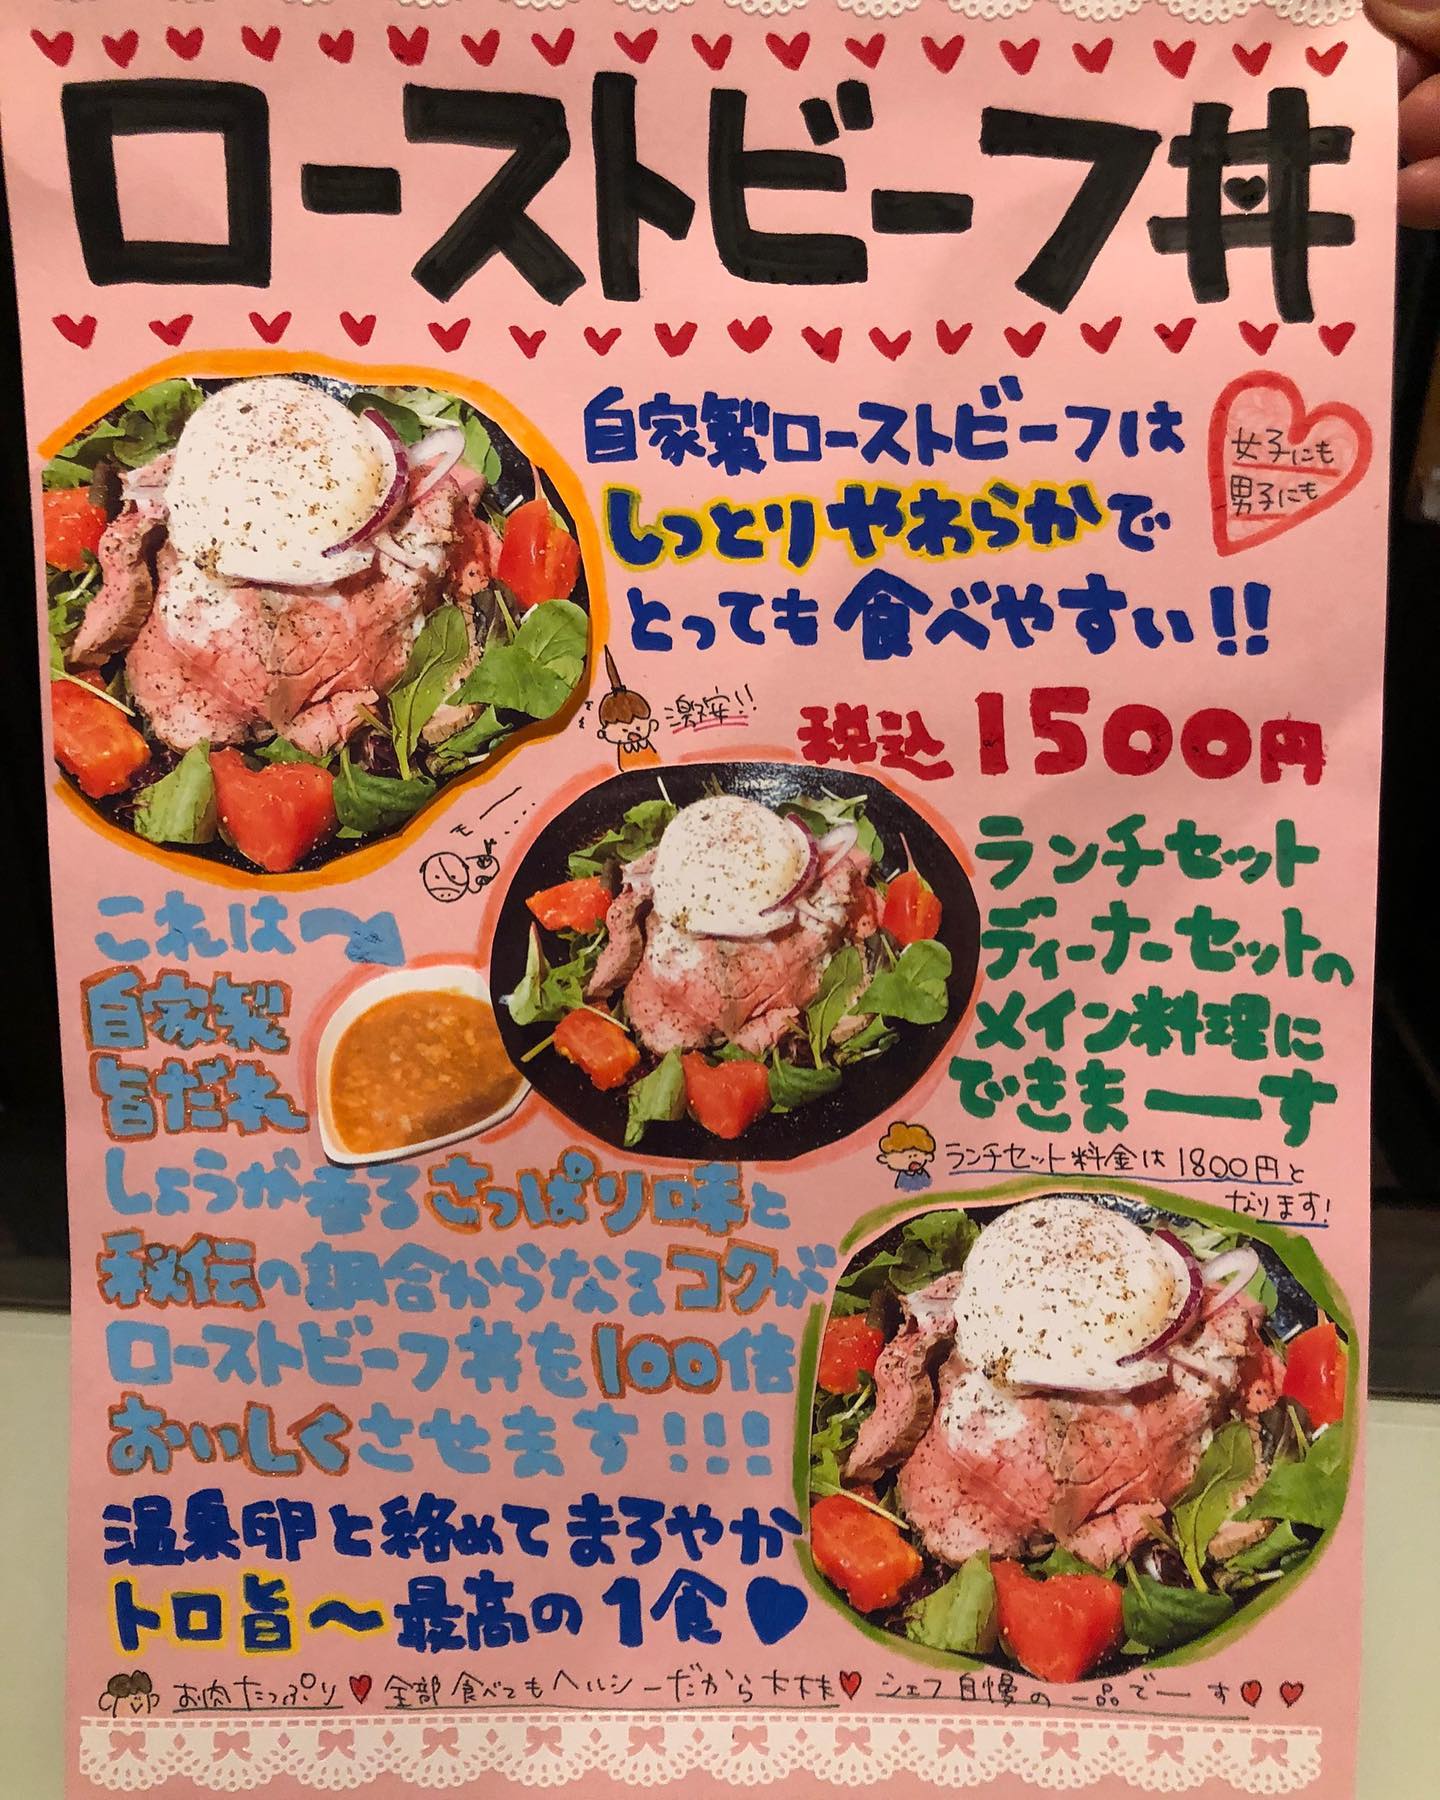 ローストビーフ丼
自家製ローストビーフは
女子にも
男子にも
しっとりやわらかで
とっても食べやすい!!
激安!!
税込1500円
モー
ランチセット
ディーナーセットの
メイン料理に
できまーす
ランチセット料金は1800円と
なります!
これは
自家製
旨だれ
しょうが香るさっぱり味と
秘伝の調合からなるコクが
ローストビーフ丼を100倍
おいしくさせます!!!
温泉卵と絡めてまろやか
トロ旨〜最高の1食
お肉たっぷり 全部食べてもヘルシーだから シェフ自慢の一品でーす